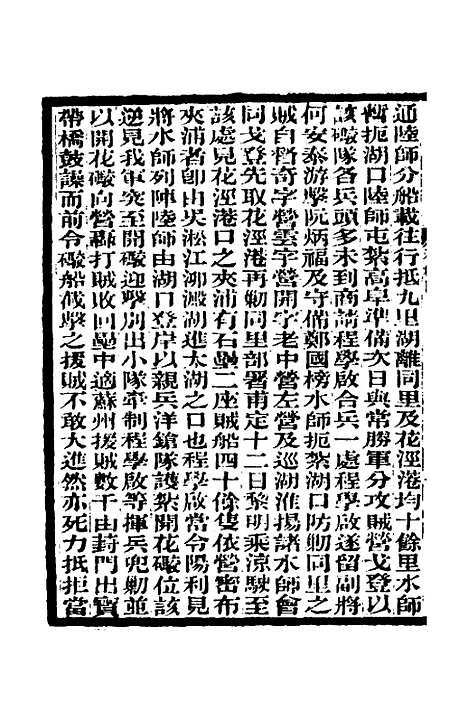 通陸師分船載往行抵九里湖離同里及花涇港均十餘里水師
暫扼湖口陸師屯紮高阜準備次日與常勝軍分攻賊營戈登以
該礮隊各兵頭多未到商請程學啟合兵一處程學啟遂留副將
何安泰游擊阮炳福及守備鄭國榜水師扼紮湖口防勦同里之
賊自督奇字營雲字營開字老中營左營及巡湖淮揚諸水師會
同戈登先取花涇港再勦同里部署甫定十二日黎明乘涼駛至
該處見花涇港口之夾浦有石壘二座賊船四十餘隻依營密布
夾浦者卽由吳淞江泖澱湖進太湖之口也程學啟當令陽利見
將水師列陣陸師由湖口登岸以親兵洋鎗隊護紮開花礮位該
逆見我軍突至開礮迎擊別出小隊牽制程學啟等揮兵兜勦並
以開花礮向營轟打賊敗回壘中適蘇州援賊數千由葑門出寶
帶橋鼓譟而前令礮船截擊之援賊不敢大進然亦死力抵拒當